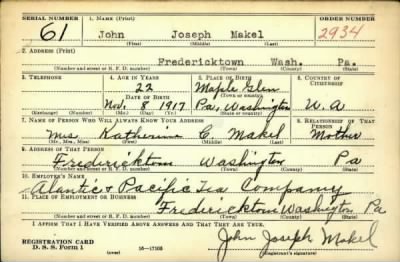 SERIAL NUMBER 1. NAME (Print) ORDER NUMBER
61 John Joseph Makel 2934
(First) (Middle) (Last)
2. ADDRESS (Print)
Fredericktown Wash. Pa.
(Number and street or R. F. D. number) (Town) (County) (State)
3. TELEPHONE 4. AGE IN YEARS 5. PLACE OF BIRTH 6. COUNTRY OF CITIZENSHIP
22 Maple Glen
DATE OF BIRTH (Town or county)
Nov. 8 1917 Pa, Washington U. A
(Exchange) (Number) (Mo.) (Day) (Yr.) (State or country)
7. NAME OF PERSON WHO WILL ALWAYS KNOW YOUR ADDRESS 8. RELATIONSHIP OF THAT PERSON
Mrs Katherine C. Makel Mother
(Mr., Mrs., Miss) (First) (Middle) (Last)
9. ADDRESS OF THAT PERSON
Fredericktown Washington Pa
(Number and street or R. F. D. number) (Town) (County) (State)
10. EMPLOYER'S NAME
Alantic & Pacific Tea Company
11. PLACE OF EMPLOYMENT OR BUSINESS
Fredericktown Washington Pa
(Number and street or R. F. D. number) (Town) (County) (State)
I AFFIRM THAT I HAVE VERIFIED ABOVE ANSWERS AND THAT THEY ARE TRUE.
REGISTRATION CARD
D. S. S. Form 1 (over) 16—17105 John Joseph Makel
(Registrant's signature)